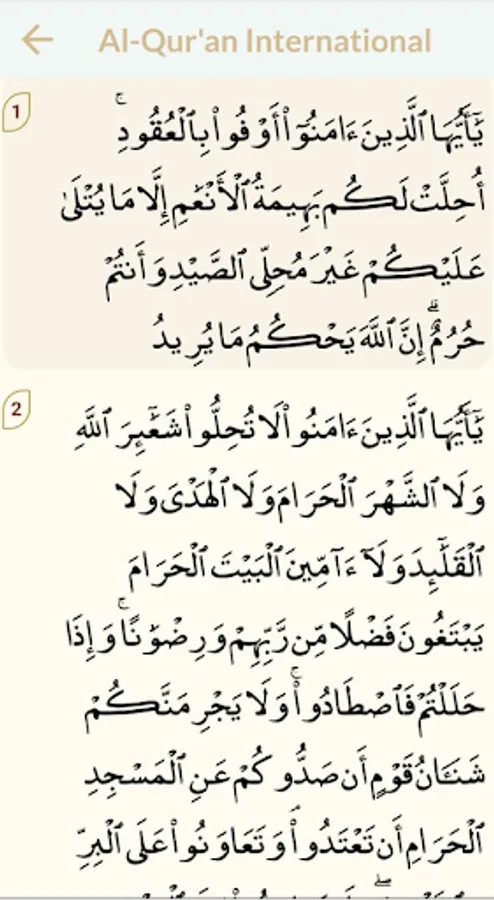 Al-Qur'an International
1
يَٰٓأَيُّهَا ٱلَّذِينَ ءَامَنُوٓا۟ أَوْفُوا۟ بِٱلْعُقُودِ ۚ
أُحِلَّتْ لَكُم بَهِيمَةُ ٱلْأَنْعَٰمِ إِلَّا مَا يُتْلَىٰ
عَلَيْكُمْ غَيْرَ مُحِلِّى ٱلصَّيْدِ وَأَنتُمْ
حُرُمٌ ۗ إِنَّ ٱللَّهَ يَحْكُمُ مَا يُرِيدُ
2
يَٰٓأَيُّهَا ٱلَّذِينَ ءَامَنُوا۟ لَا تُحِلُّوا۟ شَعَٰٓئِرَ ٱللَّهِ
وَلَا ٱلشَّهْرَ ٱلْحَرَامَ وَلَا ٱلْهَدْىَ وَلَا
ٱلْقَلَٰٓئِدَ وَلَآ ءَآمِّينَ ٱلْبَيْتَ ٱلْحَرَامَ
يَبْتَغُونَ فَضْلًا مِّن رَّبِّهِمْ وَرِضْوَٰنًا ۚ وَإِذَا
حَلَلْتُمْ فَٱصْطَادُوا۟ ۚ وَلَا يَجْرِمَنَّكُمْ
شَنَـَٔانُ قَوْمٍ أَن صَدُّوكُمْ عَنِ ٱلْمَسْجِدِ
ٱلْحَرَامِ أَن تَعْتَدُوا۟ ۘ وَتَعَاوَنُوا۟ عَلَى ٱلْبِرِّ